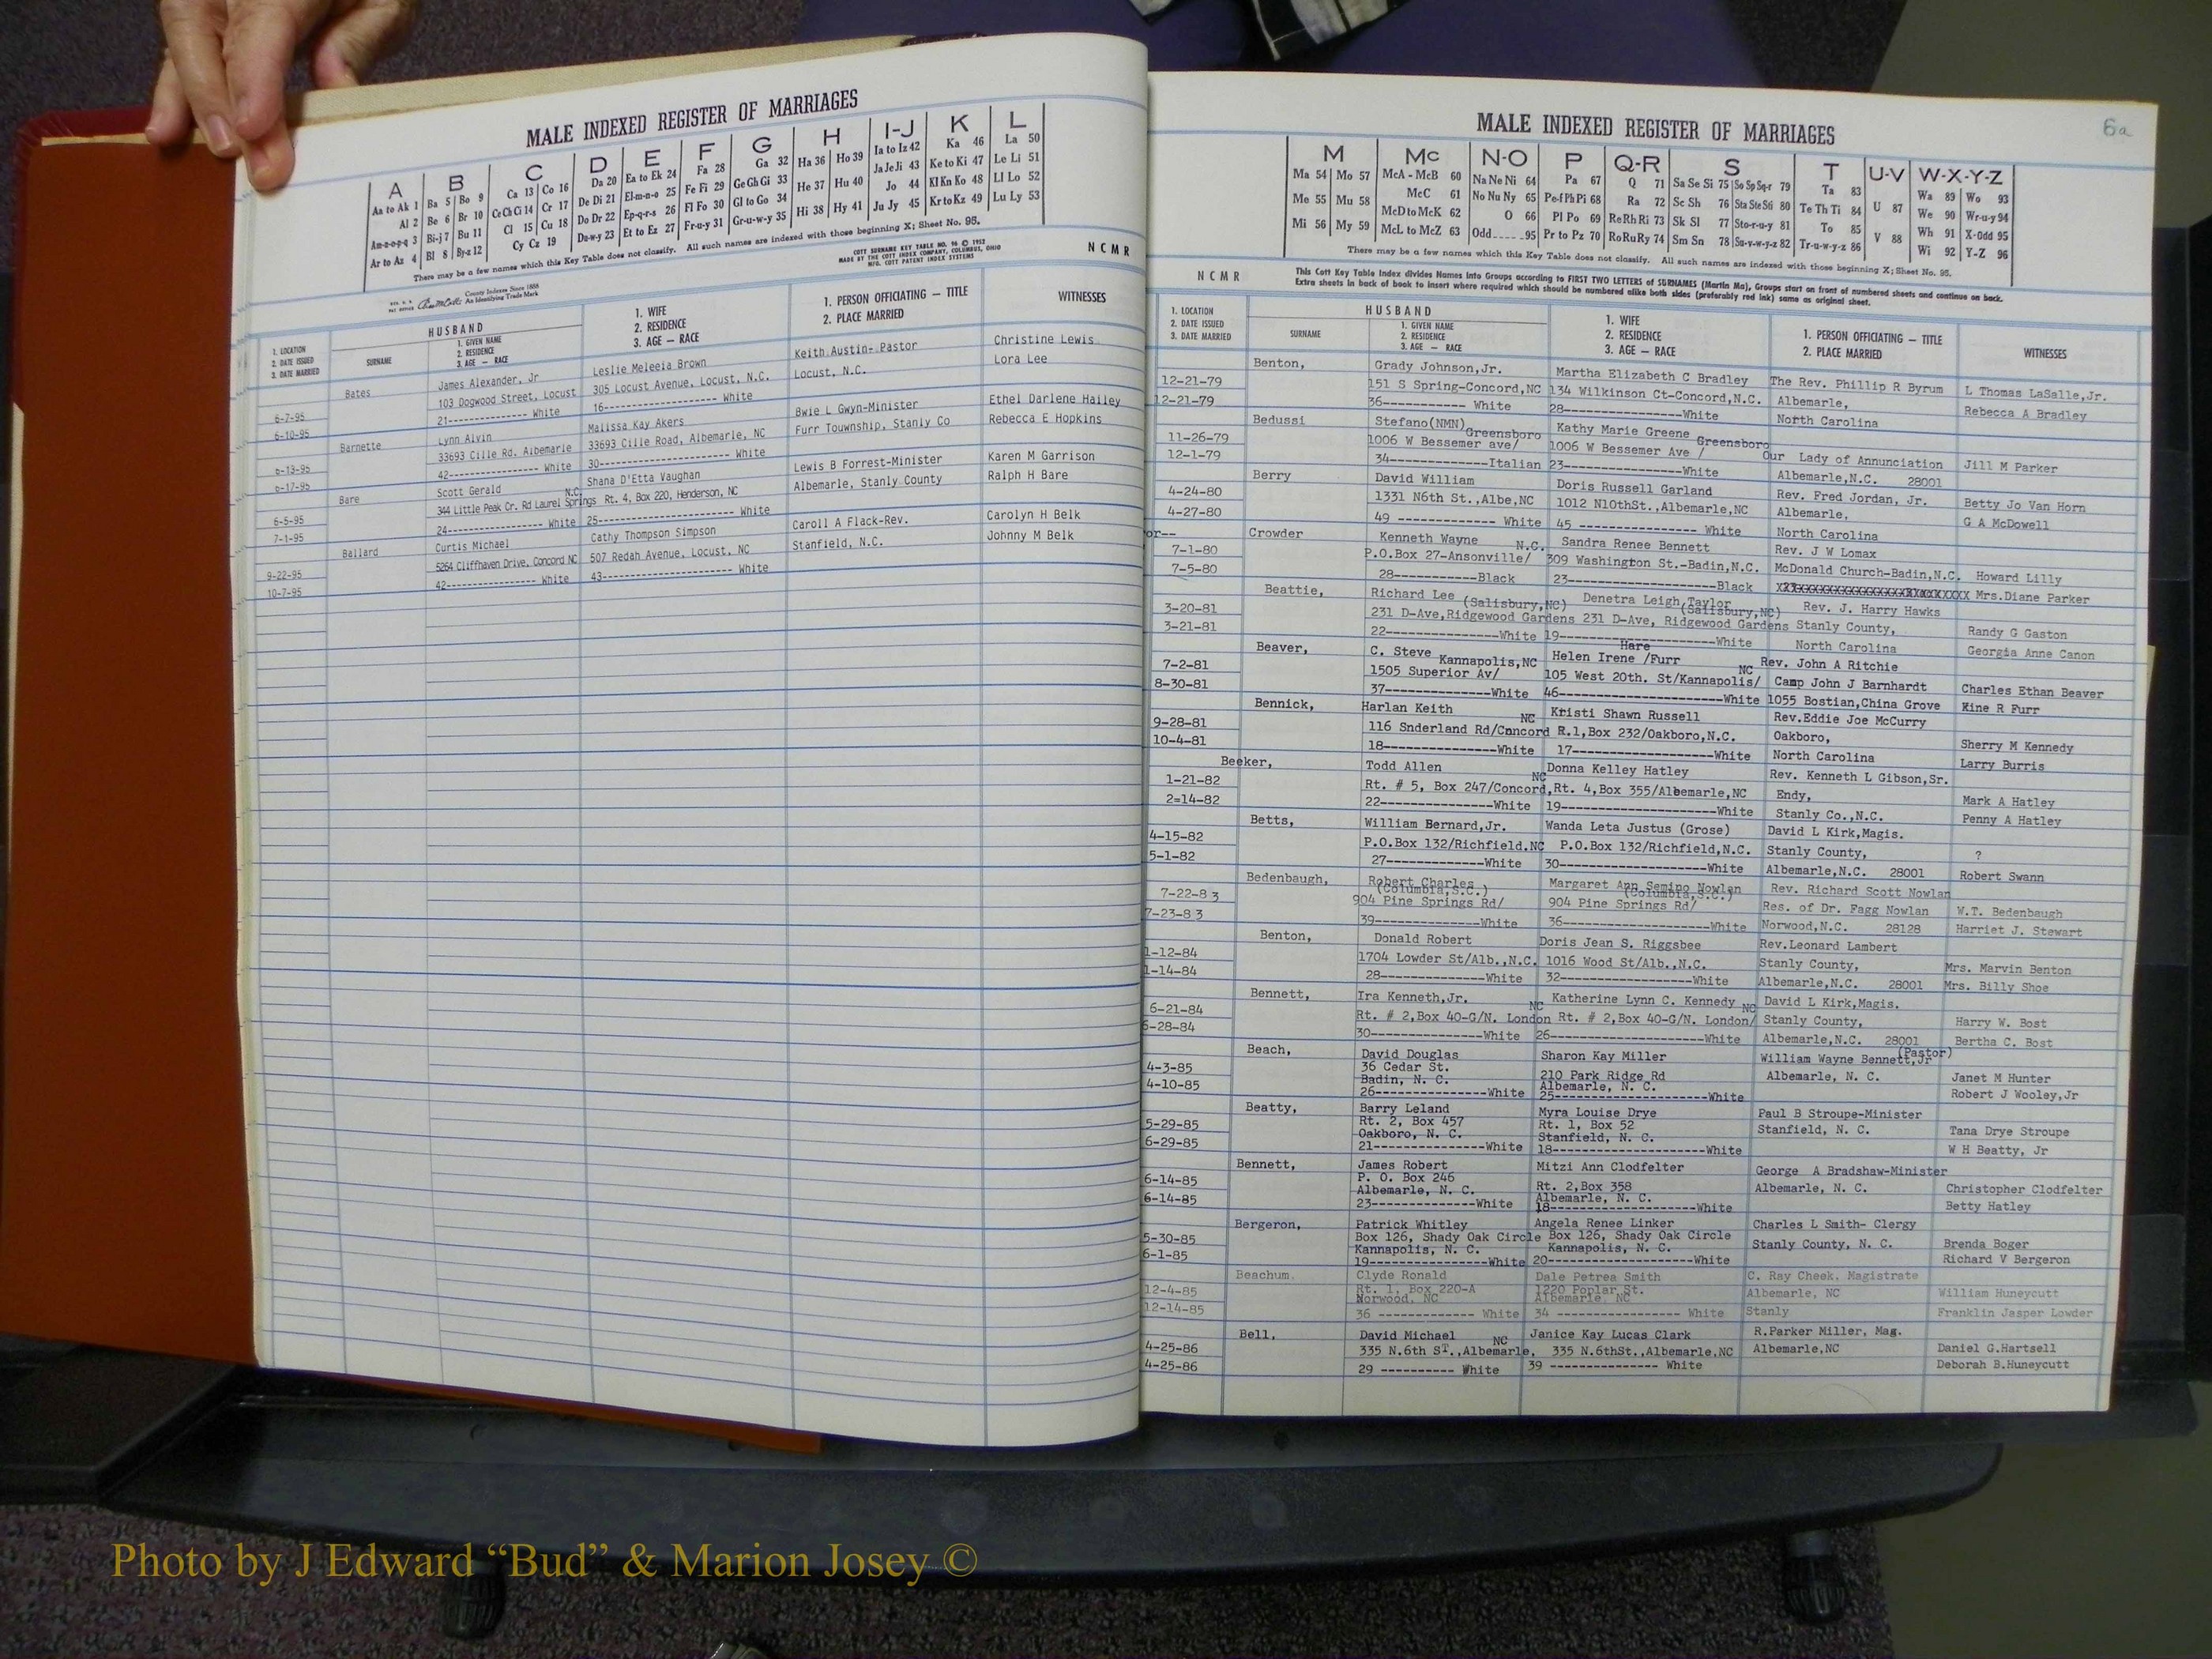 MALE INDEXED REGISTER OF MARRIAGES
A B C D E F G H I-J K L
Aa to Ak 1 Ba 5 Bo 9 Ca 13 Co 16 Da 20 Ea to Ek 24 Fa 28 Ga 32 Ha 36 Ho 39 Ia to Iz 42 Ka 46 La 50
Al 2 Be 6 Br 10 Ce Ch Ci 14 Cr 17 De Di 21 El-m-n-o 25 Fe Fi 29 Ge Gh Gi 33 He 37 Hu 40 Ja Je Ji 43 Ke to Ki 47 Le Li 51
Am-n-o-p-q 3 Bi-j 7 Bu 11 Cl 15 Cu 18 Do Dr 22 Ep-q-r-s 26 Fl Fo 30 Gl to Go 34 Hi 38 Hy 41 Jo 44 Kl Kn Ko 48 Ll Lo 52
Ar to Az 4 Bl 8 By-z 12 Cy Cz 19 Du-w-y 23 Et to Ez 27 Fr-u-y 31 Gr-u-w-y 35 Ju Jy 45 Kr to Kz 49 Lu Ly 53
There may be a few names which this Key Table does not classify. All such names are indexed with those beginning X; Sheet No. 95.
County Indexes Since 1888
An Identifying Trade Mark
COTT SURNAME KEY TABLE NO. 96 © 1952
MADE BY THE COTT INDEX COMPANY, COLUMBUS, OHIO
MFG. COTT PATENT INDEX SYSTEMS
NCMR
1. LOCATION
2. DATE ISSUED
3. DATE MARRIED
HUSBAND
SURNAME
1. GIVEN NAME
2. RESIDENCE
3. AGE — RACE
1. WIFE
2. RESIDENCE
3. AGE — RACE
1. PERSON OFFICIATING — TITLE
2. PLACE MARRIED
WITNESSES
Bates James Alexander, Jr Leslie Meleeia Brown Keith Austin-Pastor Christine Lewis
6-7-95 103 Dogwood Street, Locust 305 Locust Avenue, Locust, N.C. Locust, N.C. Lora Lee
6-10-95 21------------- White 16------------------- White
Barnette Lynn Alvin Malissa Kay Akers Bwie L Gwyn-Minister Ethel Darlene Hailey
6-13-95 33693 Cille Rd. Albemarle 33693 Cille Road, Albemarle, NC Furr Touwnship, Stanly Co Rebecca E Hopkins
6-17-95 42-------------- White 30---------------------- White
Bare Scott Gerald N.C. Shana D'Etta Vaughan Lewis B Forrest-Minister Karen M Garrison
6-5-95 344 Little Peak Cr. Rd Laurel Springs Rt. 4, Box 220, Henderson, NC Albemarle, Stanly County Ralph H Bare
7-1-95 24--------------- White 25----------------------- White
Ballard Curtis Michael Cathy Thompson Simpson Caroll A Flack-Rev. Carolyn H Belk
9-22-95 5264 Cliffhaven Drive, Concord NC 507 Redah Avenue, Locust, NC Stanfield, N.C. Johnny M Belk
10-7-95 42--------------- White 43---------------------- White
MALE INDEXED REGISTER OF MARRIAGES
6a
M Mc N-O P Q-R S T U-V W-X-Y-Z
Ma 54 Mo 57 McA - McB 60 Na Ne Ni 64 Pa 67 Q 71 Sa Se Si 75 So Sp Sq-r 79 Ta 83 U 87 Wa 89 Wo 93
Me 55 Mu 58 McC 61 No Nu Ny 65 Pe-f Ph Pi 68 Ra 72 Sc Sh 76 Sta Ste Sti 80 Te Th Ti 84 V 88 We 90 Wr-u-y 94
Mi 56 My 59 McD to McK 62 O 66 Pl Po 69 Re Rh Ri 73 Sk Sl 77 Sto-r-u-y 81 To 85 Wh 91 X-Odd 95
McL to McZ 63 Odd_____95 Pr to Pz 70 Ro Ru Ry 74 Sm Sn 78 Su-v-w-y-z 82 Tr-u-w-y-z 86 Wi 92 Y-Z 96
There may be a few names which this Key Table does not classify. All such names are indexed with those beginning X; Sheet No. 95.
NCMR
This Cott Key Table Index divides Names into Groups according to FIRST TWO LETTERS of SURNAMES (Martin Ma), Groups start on front of numbered sheets and continue on back.
Extra sheets in back of book to insert where required which should be numbered alike both sides (preferably red ink) same as original sheet.
1. LOCATION
2. DATE ISSUED
3. DATE MARRIED
HUSBAND
SURNAME
1. GIVEN NAME
2. RESIDENCE
3. AGE — RACE
1. WIFE
2. RESIDENCE
3. AGE — RACE
1. PERSON OFFICIATING — TITLE
2. PLACE MARRIED
WITNESSES
Benton, Grady Johnson,Jr. Martha Elizabeth C Bradley The Rev. Phillip R Byrum L Thomas LaSalle,Jr.
12-21-79 151 S Spring-Concord,NC 134 Wilkinson Ct-Concord,N.C. Albemarle, Rebecca A Bradley
12-21-79 36----------- White 28----------------White North Carolina
Bedussi Stefano(NMN) Greensboro Kathy Marie Greene Greensboro
11-26-79 1006 W Bessemer ave/ 1006 W Bessemer Ave / Our Lady of Annunciation Jill M Parker
12-1-79 34-------------Italian 23----------------White Albemarle,N.C. 28001
Berry David William Doris Russell Garland Rev. Fred Jordan, Jr. Betty Jo Van Horn
4-24-80 1331 N6th St.,Albe,NC 1012 N10thSt.,Albemarle,NC Albemarle, G A McDowell
4-27-80 49 ------------- White 45 ---------------- White North Carolina
or-- Crowder Kenneth Wayne N.C. Sandra Renee Bennett Rev. J W Lomax
7-1-80 P.O.Box 27-Ansonville/ 309 Washington St.-Badin,N.C. McDonald Church-Badin,N.C. Howard Lilly
7-5-80 28-----------Black 23-----------------Black Mrs.Diane Parker
Beattie, Richard Lee (Salisbury,NC) Denetra Leigh Taylor (Salisbury,NC) Rev. J. Harry Hawks
3-20-81 231 D-Ave,Ridgewood Gardens 231 D-Ave, Ridgewood Gardens Stanly County, Randy G Gaston
3-21-81 22---------------White 19-----------------White North Carolina Georgia Anne Canon
Beaver, C. Steve Kannapolis,NC Helen Irene /Furr Hare NC Rev. John A Ritchie
7-2-81 1505 Superior Av/ 105 West 20th. St/Kannapolis/ Camp John J Barnhardt Charles Ethan Beaver
8-30-81 37--------------White 46------------------White 1055 Bostian,China Grove Kine R Furr
Bennick, Harlan Keith NC Kristi Shawn Russell Rev.Eddie Joe McCurry
9-28-81 116 Snderland Rd/Cnncord R.1,Box 232/Oakboro,N.C. Oakboro, Sherry M Kennedy
10-4-81 18---------------White 17-----------------White North Carolina Larry Burris
Beeker, Todd Allen NC Donna Kelley Hatley Rev. Kenneth L Gibson,Sr.
1-21-82 Rt. # 5, Box 247/Concord, Rt. 4,Box 355/Albemarle,NC Endy, Mark A Hatley
2=14-82 22---------------White 19-----------------White Stanly Co.,N.C. Penny A Hatley
Betts, William Bernard,Jr. Wanda Leta Justus (Grose) David L Kirk,Magis.
4-15-82 P.O.Box 132/Richfield.NC P.O.Box 132/Richfield,N.C. Stanly County, ?
5-1-82 27-------------White 30-----------------White Albemarle,N.C. 28001 Robert Swann
Bedenbaugh, Robert Charles (Columbia,S.C.) Margaret Ann Semino Nowlan (Columbia,S.C.) Rev. Richard Scott Nowlan
7-22-83 904 Pine Springs Rd/ 904 Pine Springs Rd/ Res. of Dr. Fagg Nowlan W.T. Bedenbaugh
7-23-83 39--------------White 36-----------------White Norwood,N.C. 28128 Harriet J. Stewart
Benton, Donald Robert Doris Jean S. Riggsbee Rev.Leonard Lambert
1-12-84 1704 Lowder St/Alb.,N.C. 1016 Wood St/Alb.,N.C. Stanly County, Mrs. Marvin Benton
1-14-84 28--------------White 32----------------White Albemarle,N.C. 28001 Mrs. Billy Shoe
Bennett, Ira Kenneth,Jr. NC Katherine Lynn C. Kennedy NC David L Kirk,Magis.
6-21-84 Rt. # 2,Box 40-G/N. London Rt. # 2,Box 40-G/N. London/ Stanly County, Harry W. Bost
6-28-84 30---------------White 26------------------White Albemarle,N.C. 28001 Bertha C. Bost
Beach, David Douglas Sharon Kay Miller William Wayne Bennett,Jr (Pastor)
4-3-85 36 Cedar St. 210 Park Ridge Rd Albemarle, N. C. Janet M Hunter
4-10-85 Badin, N. C. Albemarle, N. C. Robert J Wooley,Jr
26---------------White 25------------------White
Beatty, Barry Leland Myra Louise Drye Paul B Stroupe-Minister
5-29-85 Rt. 2, Box 457 Rt. 1, Box 52 Stanfield, N. C. Tana Drye Stroupe
6-29-85 Oakboro, N. C. Stanfield, N. C. W H Beatty, Jr
21---------------White 18------------------White
Bennett, James Robert Mitzi Ann Clodfelter George A Bradshaw-Minister
6-14-85 P. O. Box 246 Rt. 2,Box 358 Albemarle, N. C. Christopher Clodfelter
6-14-85 Albemarle, N. C. Albemarle, N. C. Betty Hatley
23--------------White 18-----------------White
Bergeron, Patrick Whitley Angela Renee Linker Charles L Smith- Clergy
5-30-85 Box 126, Shady Oak Circle Box 126, Shady Oak Circle Stanly County, N. C. Brenda Boger
6-1-85 Kannapolis, N. C. Kannapolis, N. C. Richard V Bergeron
19---------------White 20-----------------White
Beachum. Clyde Ronald Dale Petrea Smith C. Ray Cheek, Magistrate
12-4-85 Rt. 1, Box 220-A 1220 Poplar St. Albemarle, NC William Huneycutt
12-14-85 Norwood, NC Albemarle, NC Stanly Franklin Jasper Lowder
36 ------------ White 34 ---------------- White
Bell, David Michael NC Janice Kay Lucas Clark R.Parker Miller, Mag.
4-25-86 335 N.6th ST.,Albemarle, 335 N.6thSt.,Albemarle,NC Albemarle,NC Daniel G.Hartsell
4-25-86 29 ---------- White 39 --------------- White Deborah B.Huneycutt
Photo by J Edward “Bud” & Marion Josey ©